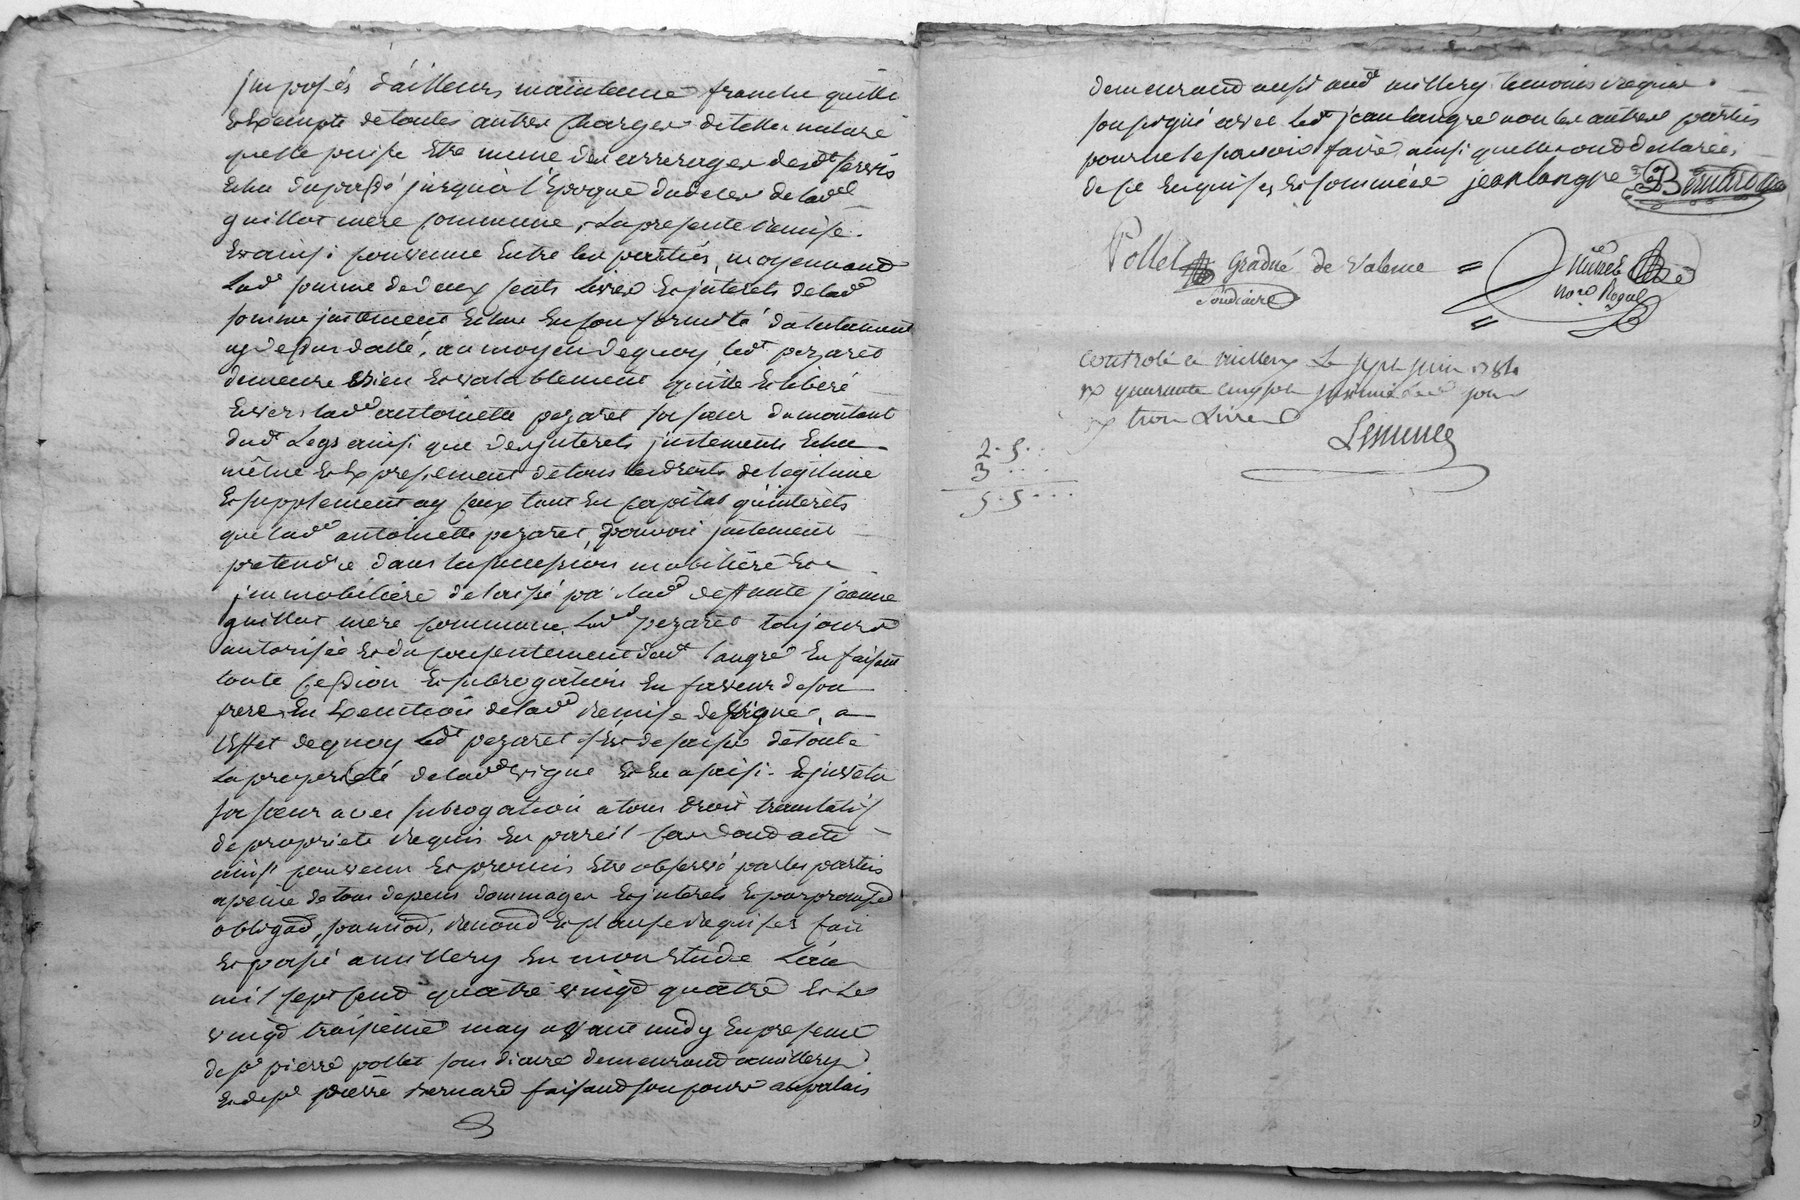 imposés d'ailleurs maintenue franche quitte
et Exempte de toutes autres charges de telle nature
quelle puisse Etre meme des arrerages desdts servis
Echu du passé jusqu'à l'Epoque du deces de lade
guillot mere commune, La presente Remise
Et ainsi convenue Entre les parties, moyennant
Lade somme de deux cents Livres Et interets de lade
somme justement Echu En conformité du testament
cy dessus datté, au moyen de quoy ledt pezaret
demeure Bien Et valablement quitte Et libéré
Envers lade antoinette pezaret sa sœur du montant
dudt Legs ainsi que des interets justements Echu
même Et Expressement de tous les droits de legitime
Et supplement d'iceux tant En capital qu'interèts
que lade antoinette pezaret, pouvoit justement
pretendre dans la succession mobiliere Et
immobiliére delaissé par lade deffunte jeanne
guillot mere commune, Lade pezaret toujours
autorisée Et du consentement dudt langré En faisant
toute cession Et subrogation En faveur de son
frere, En Execution de lade Remise de vigne, a
l'Effet de quoy Ledt pezaret s'est desaisi de toute
La propriété de lade vigne Et En a saisi Et investu
sa sœur avec subrogation a tous droit translatif
de propriete Requis En pareil cas dont acte
ainsi convenu Et promis Etre observé par les parties
a peine de tous depens dommages Et interets Et par promesse
obligaõn, soumission, Renonciaõn Et clause requises fait
Et passé a millery En mon Etude L'an
mil sept cent quatre vingt quatre Et Le
vingt troisieme may avant midy En presence
de sr pierre pollet soudiacre demeurant a millery
Et de sr pierre Bernard faisant son cours au palais
demeurant aussi audt millery temoins requis
soussigné avec ledt jean langre non les autres parties
pour ne le savoir faire ainsi quelles ont declarées
de ce Enquises Et sommées jean langre Bernard
Pollet gradué de valence
soudiacre
nore Royal
Controlé a millery Le sept juin 1784
rx quarante cinq sols
rx trois Livres
2. 5..
3 ...
5. 5...